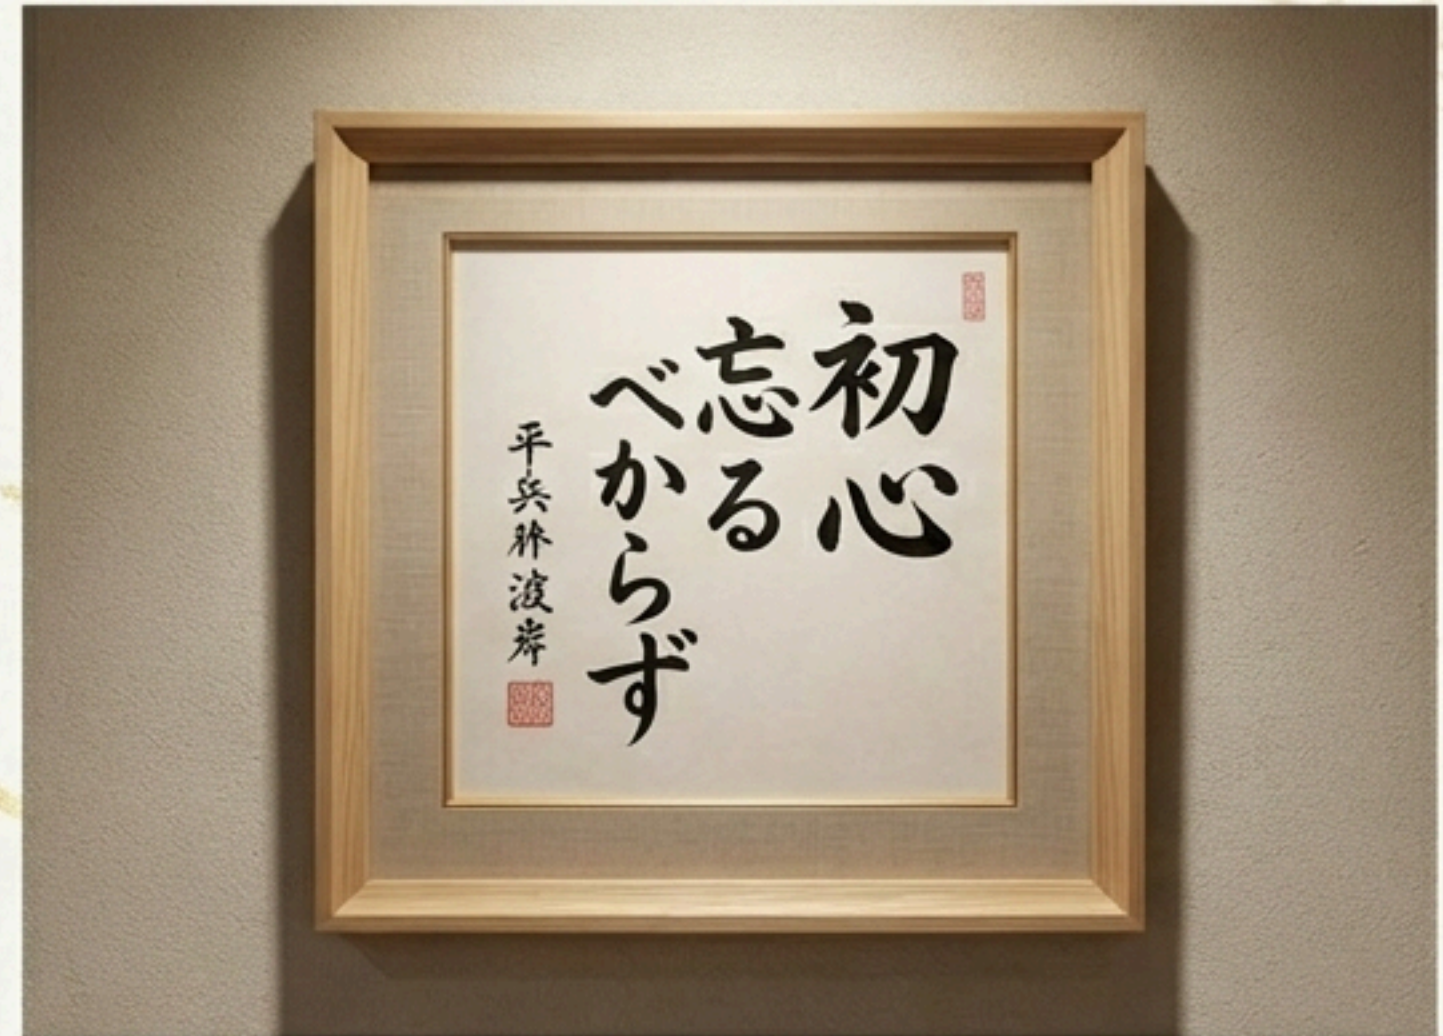 初心
忘る
べからず
平兵